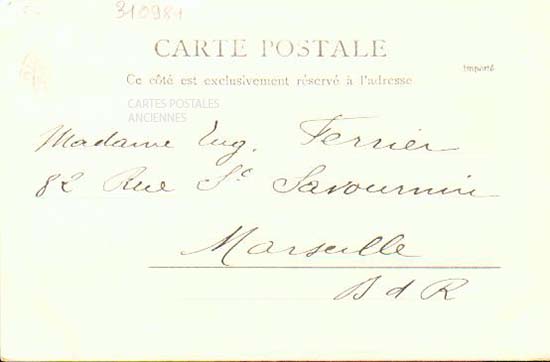 310981
CARTE POSTALE
Ce côté est exclusivement réservé à l'adresse
Imprimé
CARTES POSTALES
ANCIENNES
Madame Eug. Ferrier
82 Rue St Savournin
Marseille
B d R